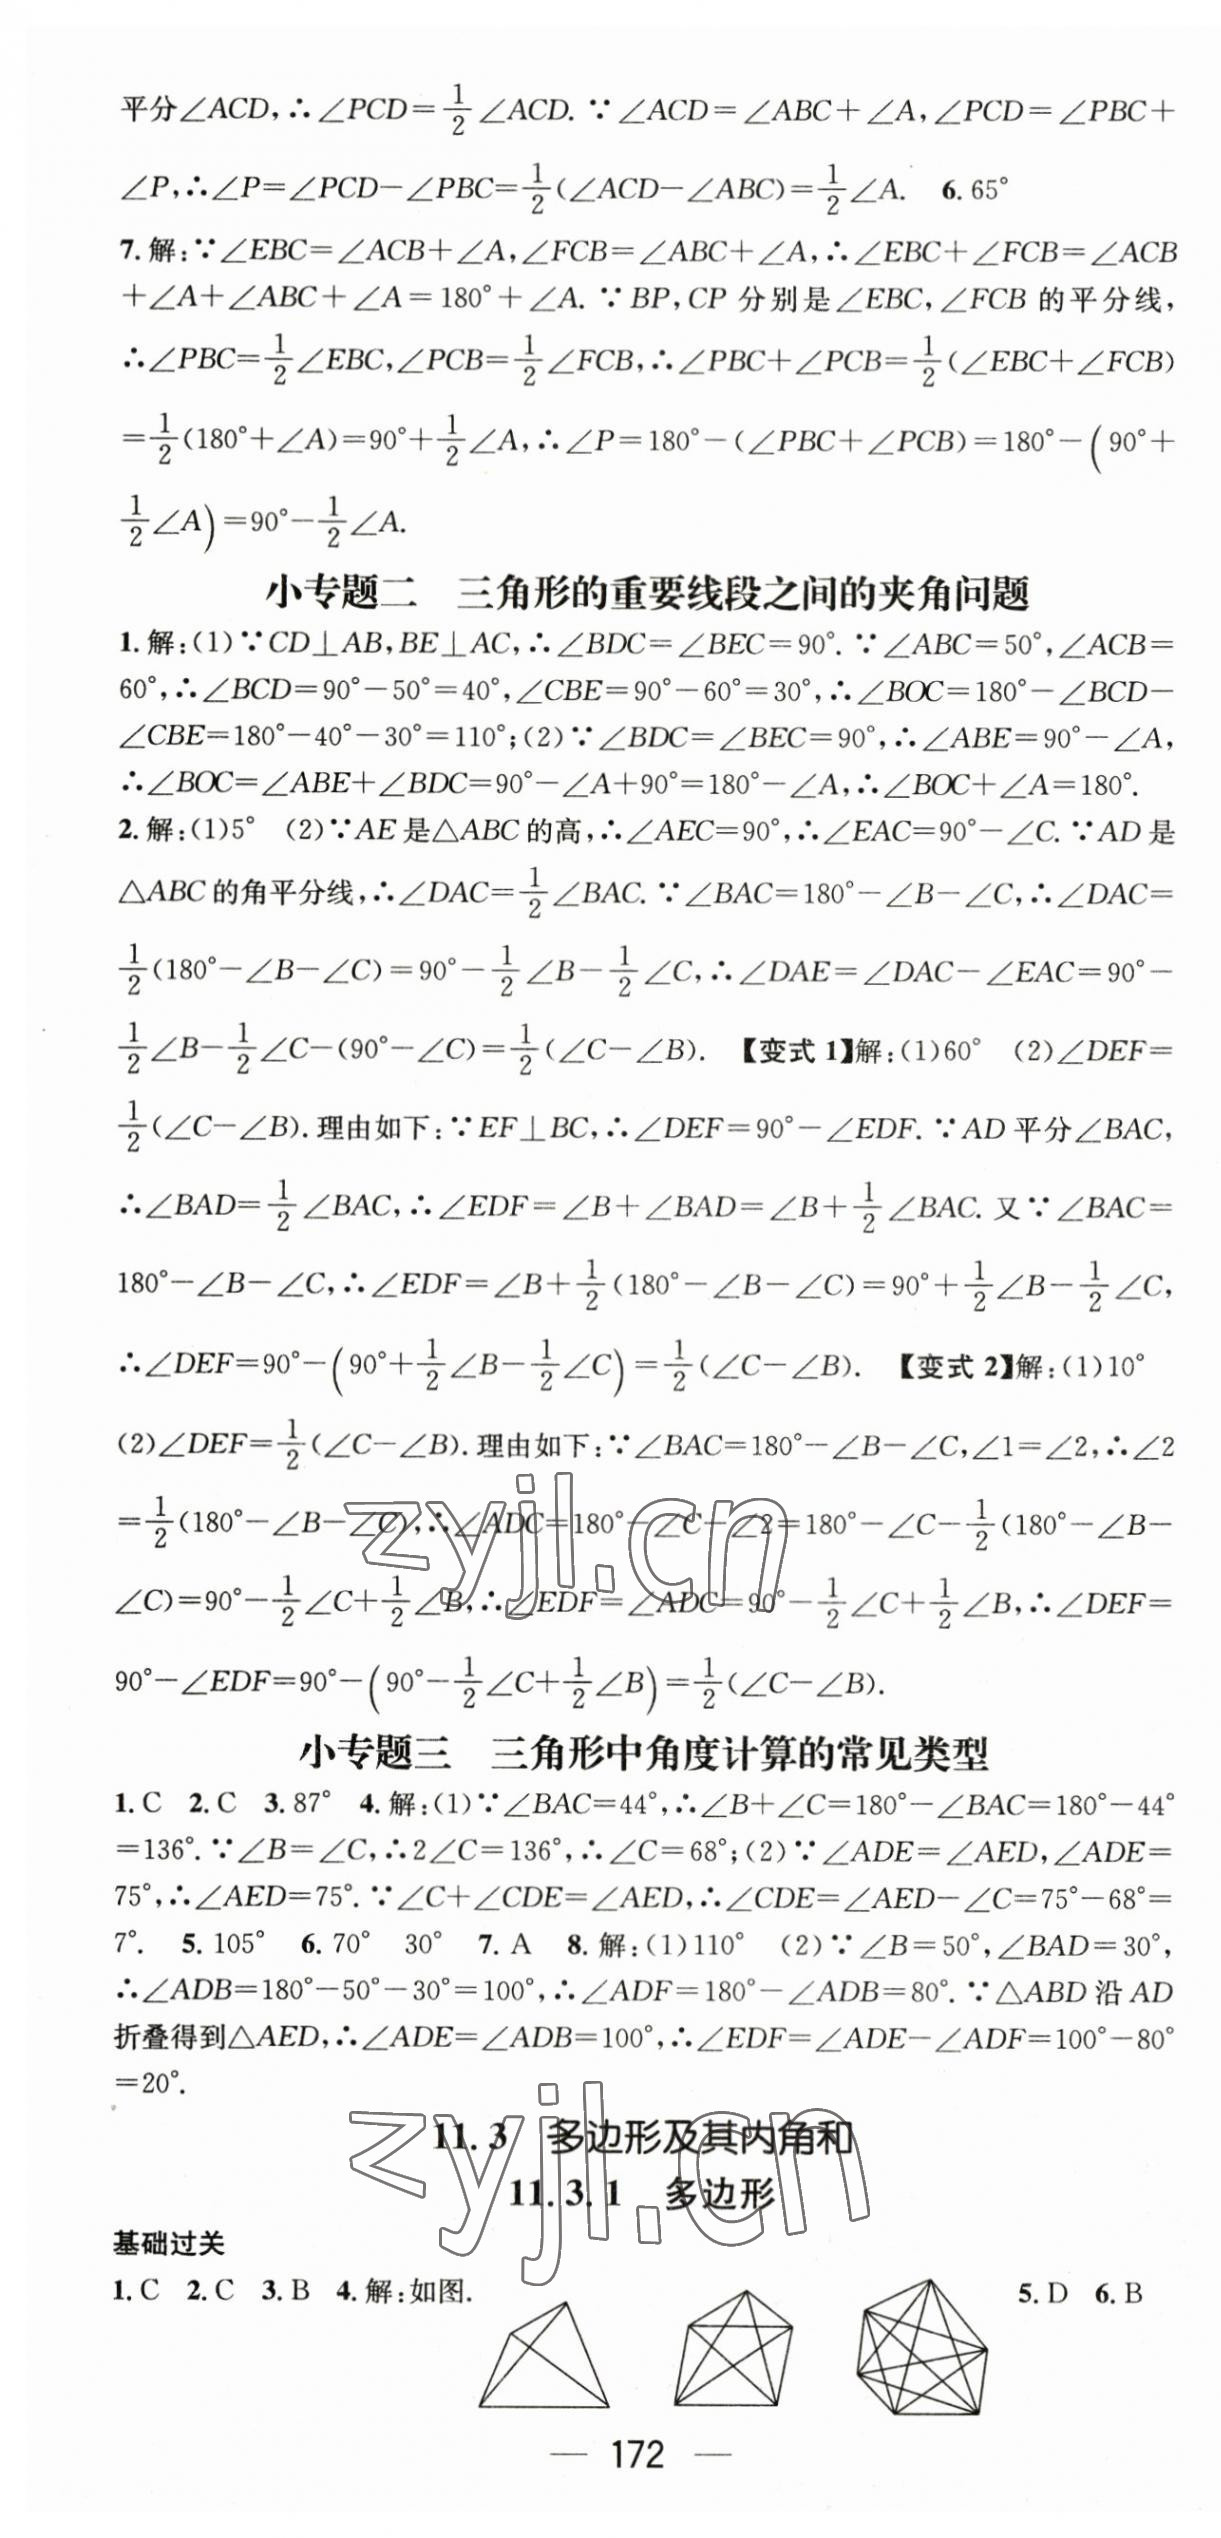 平分∠ACD,∴∠PCD=1/2∠ACD.∵∠ACD=∠ABC+∠A,∠PCD=∠PBC+
∠P,∴∠P=∠PCD−∠PBC=1/2(∠ACD−∠ABC)=1/2∠A. 6.65°
7.解:∵∠EBC=∠ACB+∠A,∠FCB=∠ABC+∠A,∴∠EBC+∠FCB=∠ACB
+∠A+∠ABC+∠A=180°+∠A.∵BP,CP分别是∠EBC,∠FCB的平分线,
∴∠PBC=1/2∠EBC,∠PCB=1/2∠FCB,∴∠PBC+∠PCB=1/2(∠EBC+∠FCB)
=1/2(180°+∠A)=90°+1/2∠A,∴∠P=180°−(∠PBC+∠PCB)=180°−(90°+
1/2∠A)=90°−1/2∠A.
小专题二 三角形的重要线段之间的夹角问题
1.解:(1)∵CD⊥AB,BE⊥AC,∴∠BDC=∠BEC=90°.∵∠ABC=50°,∠ACB=
60°,∴∠BCD=90°−50°=40°,∠CBE=90°−60°=30°,∴∠BOC=180°−∠BCD−
∠CBE=180°−40°−30°=110°;(2)∵∠BDC=∠BEC=90°,∴∠ABE=90°−∠A,
∴∠BOC=∠ABE+∠BDC=90°−∠A+90°=180°−∠A,∴∠BOC+∠A=180°.
2.解:(1)5° (2)∵AE是△ABC的高,∴∠AEC=90°,∴∠EAC=90°−∠C.∵AD是
△ABC的角平分线,∴∠DAC=1/2∠BAC.∵∠BAC=180°−∠B−∠C,∴∠DAC=
1/2(180°−∠B−∠C)=90°−1/2∠B−1/2∠C,∴∠DAE=∠DAC−∠EAC=90°−
1/2∠B−1/2∠C−(90°−∠C)=1/2(∠C−∠B). 【变式1】解:(1)60° (2)∠DEF=
1/2(∠C−∠B).理由如下:∵EF⊥BC,∴∠DEF=90°−∠EDF.∵AD平分∠BAC,
∴∠BAD=1/2∠BAC,∴∠EDF=∠B+∠BAD=∠B+1/2∠BAC.又∵∠BAC=
180°−∠B−∠C,∴∠EDF=∠B+1/2(180°−∠B−∠C)=90°+1/2∠B−1/2∠C,
∴∠DEF=90°−(90°+1/2∠B−1/2∠C)=1/2(∠C−∠B). 【变式2】解:(1)10°
(2)∠DEF=1/2(∠C−∠B).理由如下:∵∠BAC=180°−∠B−∠C,∠1=∠2,∴∠2
=1/2(180°−∠B−∠C),∴∠ADC=180°−∠C−∠2=180°−∠C−1/2(180°−∠B−
∠C)=90°−1/2∠C+1/2∠B,∴∠EDF=∠ADC=90°−1/2∠C+1/2∠B,∴∠DEF=
90°−∠EDF=90°−(90°−1/2∠C+1/2∠B)=1/2(∠C−∠B).
zyjl.cn
小专题三 三角形中角度计算的常见类型
1.C 2.C 3.87° 4.解:(1)∵∠BAC=44°,∴∠B+∠C=180°−∠BAC=180°−44°
=136°.∵∠B=∠C,∴2∠C=136°,∴∠C=68°;(2)∵∠ADE=∠AED,∠ADE=
75°,∴∠AED=75°.∵∠C+∠CDE=∠AED,∴∠CDE=∠AED−∠C=75°−68°=
7°. 5.105° 6.70° 30° 7.A 8.解:(1)110° (2)∵∠B=50°,∠BAD=30°,
∴∠ADB=180°−50°−30°=100°,∴∠ADF=180°−∠ADB=80°.∵△ABD沿AD
折叠得到△AED,∴∠ADE=∠ADB=100°,∴∠EDF=∠ADE−∠ADF=100°−80°
=20°.
11.3 多边形及其内角和
11.3.1 多边形
zyjl.cn
基础过关
1.C 2.C 3.B 4.解:如图. 5.D 6.B
— 172 —